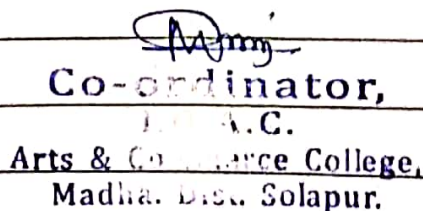 Co-ordinator,
Arts & Commerce College,
Madha. Dist. Solapur.